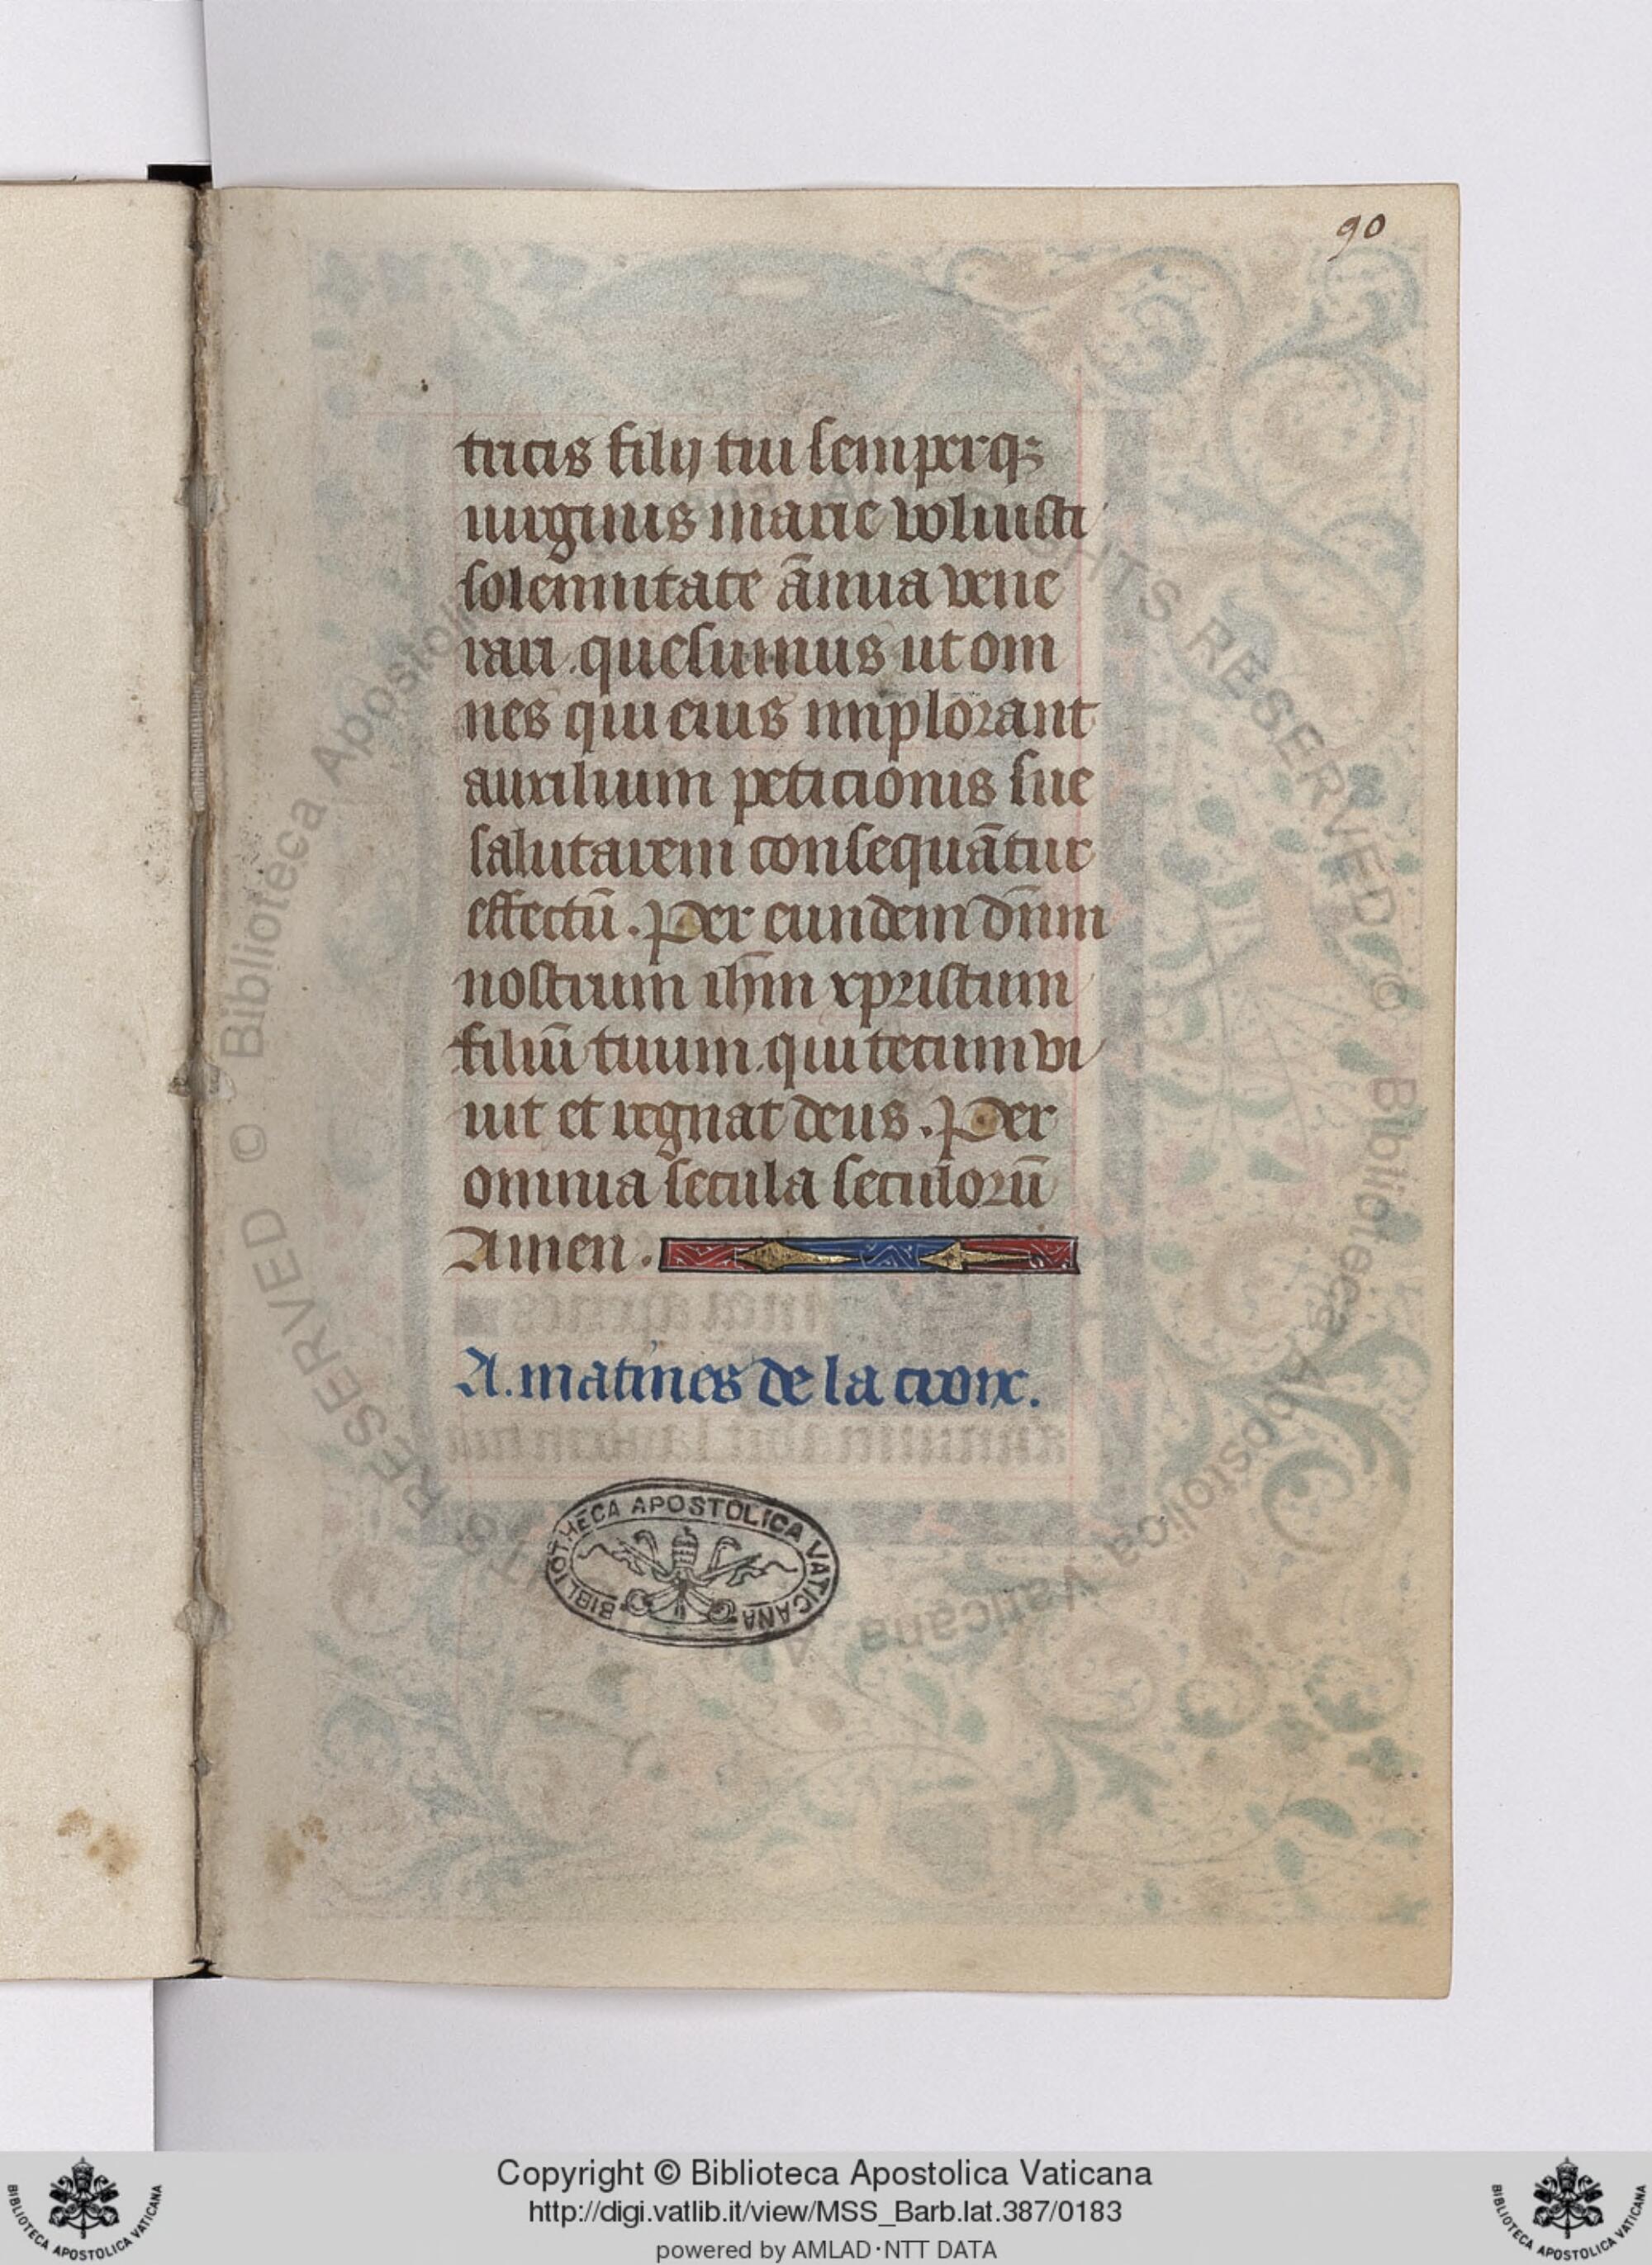 90
tricis filij tui semperq3
uirginis marie voluisti
solemnitate ānua vene
rari. quesumus ut om
nes qui eius implorant
auxilium peticionis sue
salutarem consequātur
effectū. Per eundem dn̄m
nostrum ihm̄ xpristum
filiū tuum. qui tecum vi
uit et regnat deus. Per
omnia secula seculorū
Amen.
A. matines de la croix.
BIBLIOTHECA APOSTOLICA VATICANA
Copyright © Biblioteca Apostolica Vaticana
http://digi.vatlib.it/view/MSS_Barb.lat.387/0183
powered by AMLAD·NTT DATA
BIBLIOTECA APOSTOLICA VATICANA
BIBLIOTECA APOSTOLICA VATICANA